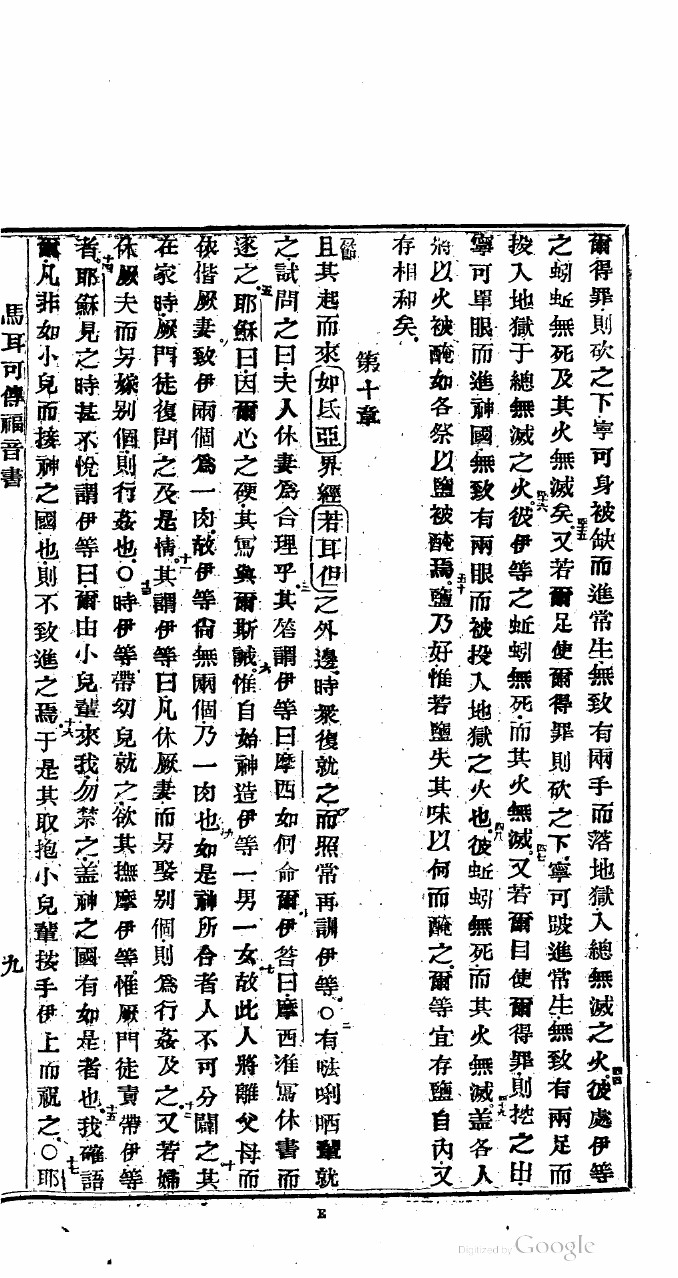 爾得罪則砍之下寧可身被缺而進常生無致有兩手而落地獄入總無滅之火。四四彼處伊等
之蚓蚯無死及其火無滅矣。四五又若爾足使爾得罪則砍之下寧可跛進常生無致有兩足而
投入地獄于總無滅之火。四六彼伊等之蚯蚓無死而其火無滅。四七又若爾目使爾得罪則挖之出
寧可單眼而進神國無致有兩眼而被投入地獄之火也。四八彼蚯蚓無死而其火無滅。四九盖各人
將以火被醃如各祭以鹽被醃焉。五十鹽乃好惟若鹽失其味以何而醃之。爾等宜存鹽自內又
存相和矣。
第十章
且其起而來如氐亞界經若耳但之外邊。時衆復就之而照常再訓伊等。○二有㕸唎哂輩就
之試問之曰夫人休妻為合理乎。三其答謂伊等曰摩西如何命爾。四伊答曰摩西准寫休書而
逐之。五耶穌曰因爾心之硬其寫與爾斯誡。六惟自始神造伊等一男一女。七故此人將離父母而
依偕厥妻。八致伊兩個為一肉。故伊等尚無兩個乃一肉也。九如是神所合者人不可分闢之。十其
在家時厥門徒復問之及是情。十一其謂伊等曰凡休厥妻而另娶別個則為行姦及之。十二又若婦
休厥夫而另嫁別個則行姦也。○十三時伊等帶幼兒就之欲其撫摩伊等。惟厥門徒責帶伊等
者。十四耶穌見之時甚不悅謂伊等曰爾由小兒輩來我勿禁之盖神之國有如是者也。十五我確語
爾凡非如小兒而接神之國也則不致進之焉。十六于是其取抱小兒輩按手伊上而祝之。○十七耶
馬耳可傳福音書 九
E
Digitized by Google